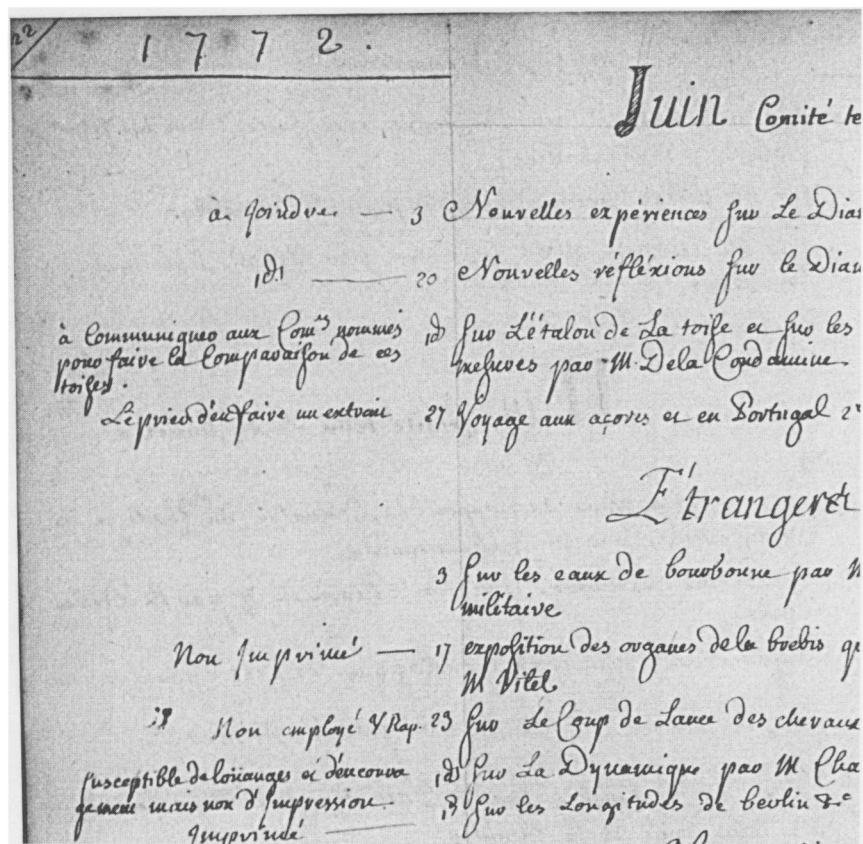 22
1772.
Juin Comité te
à Joindre — 3 Nouvelles expériences sur Le Dia
id — 20 Nouvelles réfléxions sur le Diam
à Communiquer aux Com.res nommés id sur L'étalon de La toise et sur les
pour faire la Comparaison de ces mesures par M. De la Condamine
toises.
Le prier d'en faire un extrait 27 Voyage aux açores et en Portugal 2
Étrangers
3 sur les eaux de bourbonne par M
militaire
Non Imprimé — 17 exposition des organes de la brebis q
M Vitet
id Non employé V Rap. 23 sur Le Coup de Lance des chevaux
susceptible de loüanges et d'encoura id sur La Dynamique par M Cha
gement mais non d'Impression id sur les Longitudes de berlin &c
Imprimé —